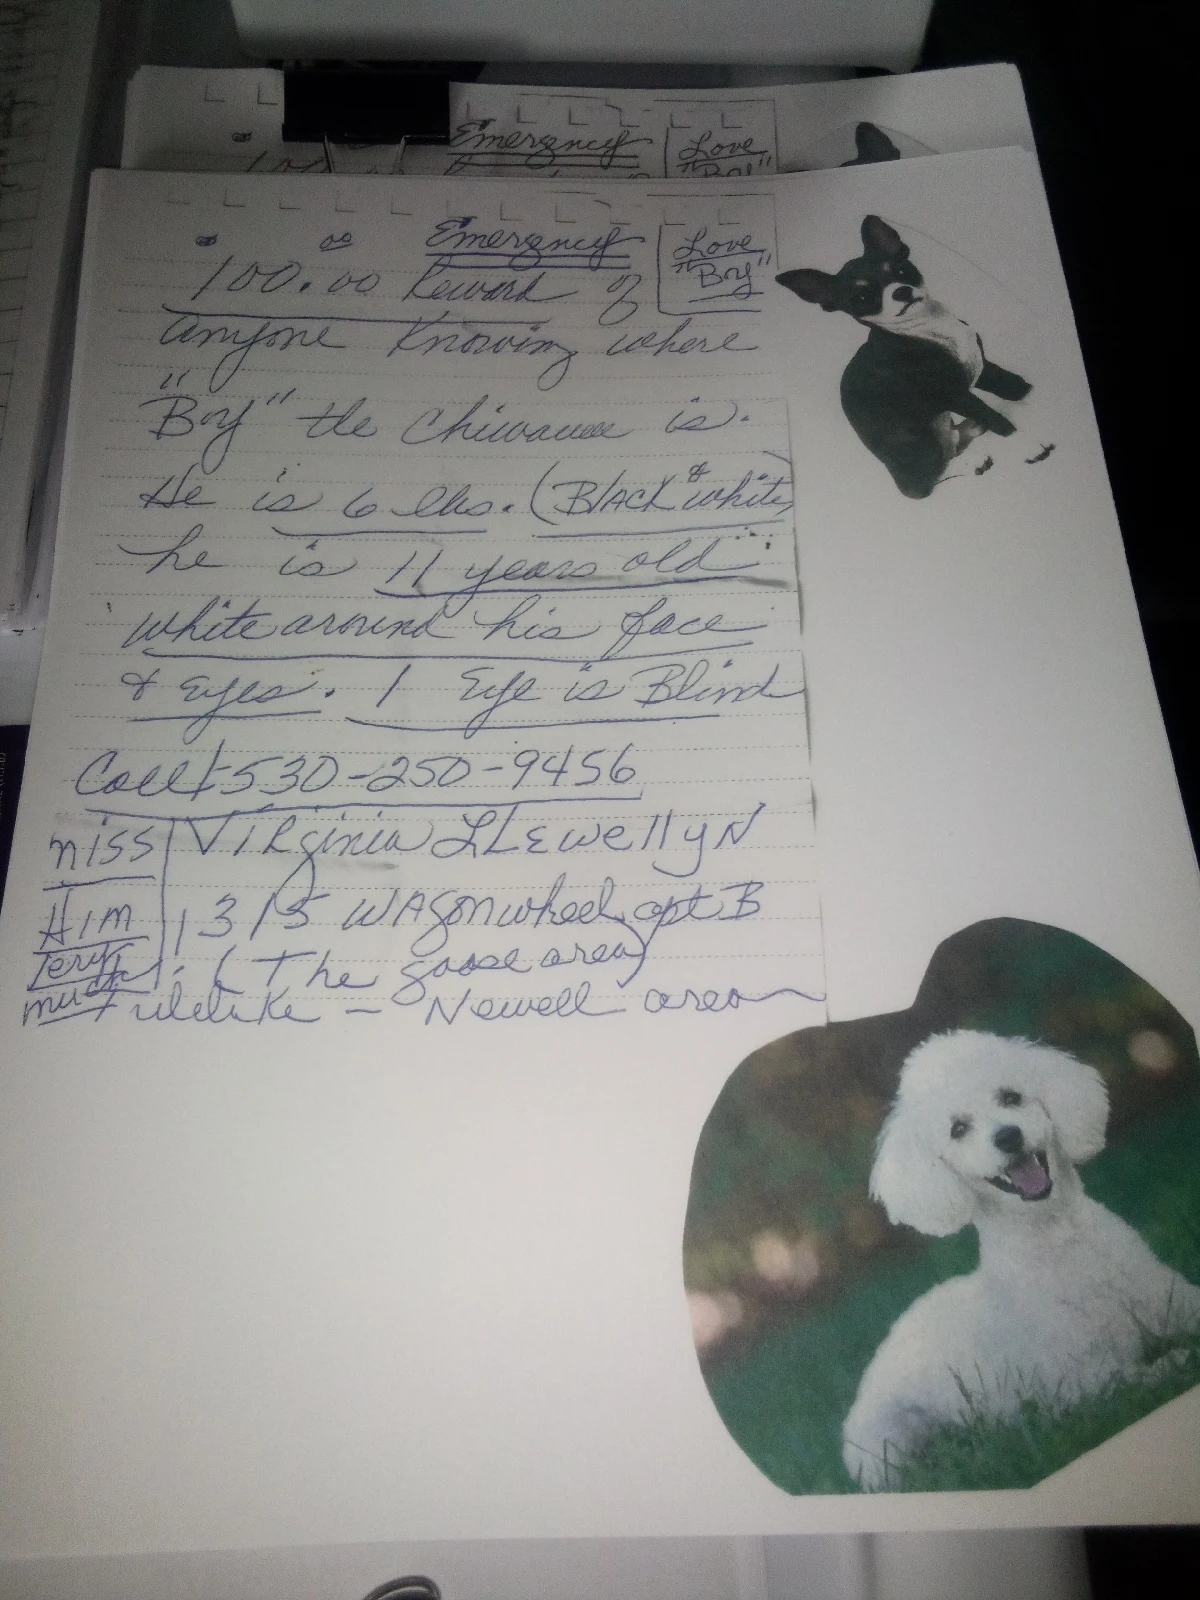 Emergency
Love
"Boy"
Emergency
Love
"Boy"
100.00 Reward of
anyone Knowing where
"Boy" the Chiwauee is.
He is 6 lbs. (Black & white,
he is 11 years old
white around his face
& Eyes. 1 Eye is Blind
Call 530-250-9456
miss
Him
very
much
Virginia LLEwellyN
1315 WAgonwheel, apt B
(The goose area)
- Newell area